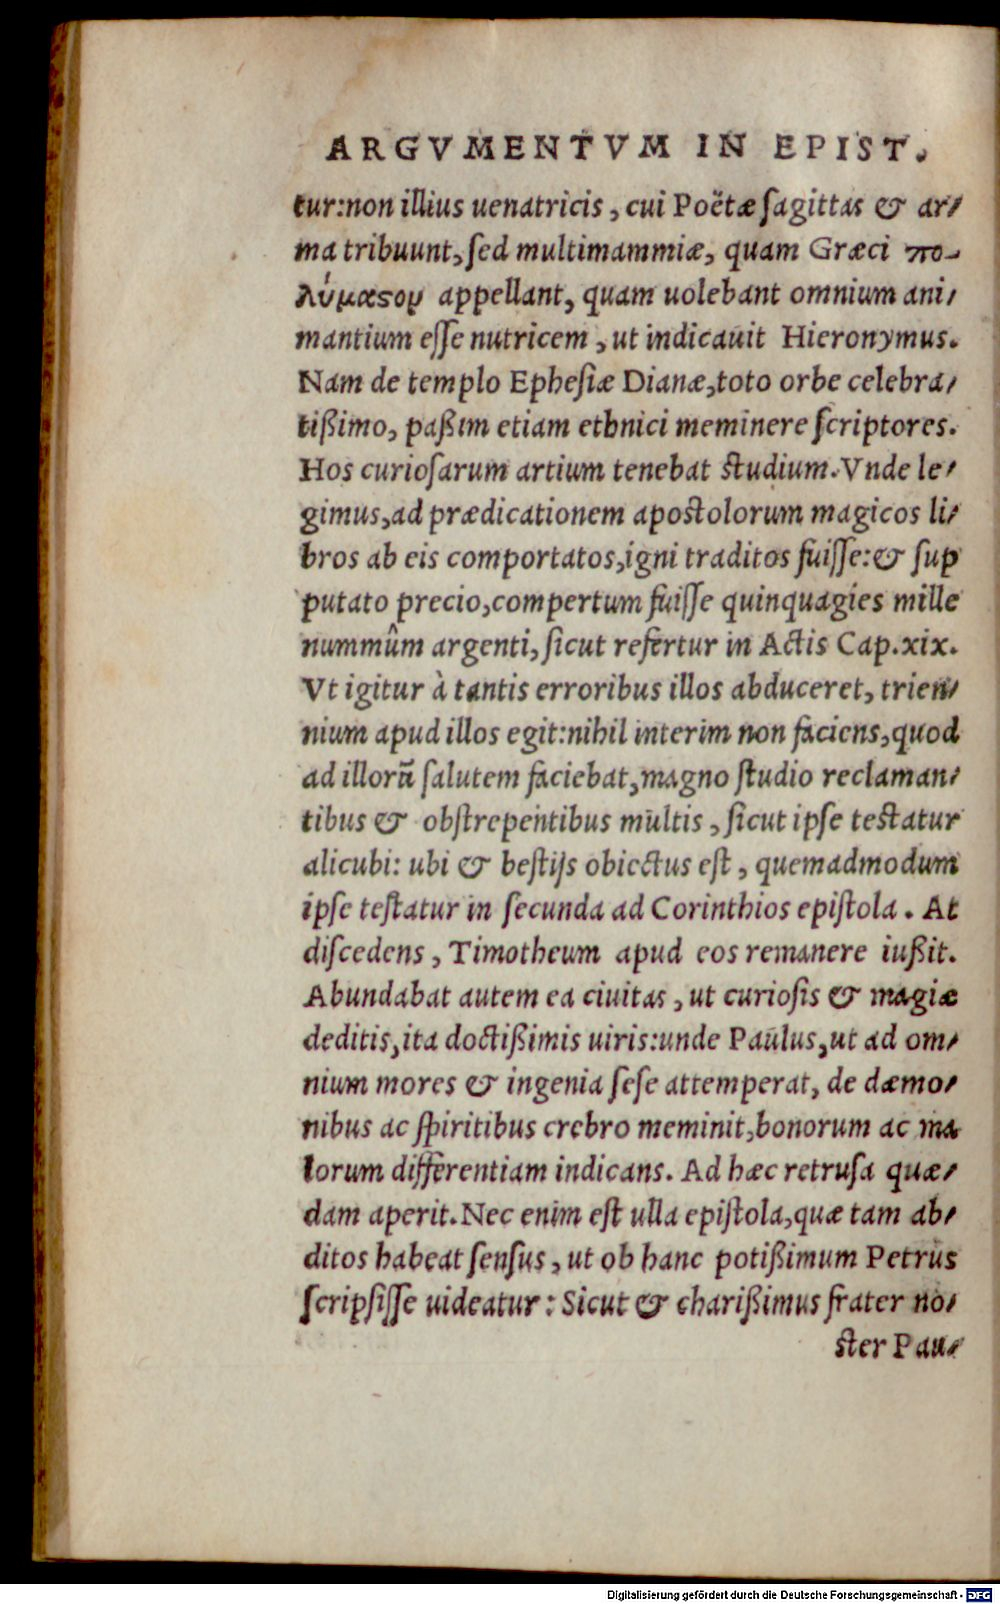 ARGVMENTVM IN EPIST.
tur:non illius uenatricis, cui Poëtæ ſagittas & ar-
ma tribuunt, ſed multimammiæ, quam Græci πο-
λύμαϛον appellant, quam uolebant omnium ani-
mantium eſſe nutricem, ut indicauit Hieronymus.
Nam de templo Epheſiæ Dianæ, toto orbe celebra-
tißimo, paßim etiam ethnici meminere ſcriptores.
Hos curioſarum artium tenebat ſtudium. Vnde le-
gimus, ad prædicationem apoſtolorum magicos li-
bros ab eis comportatos, igni traditos fuiſſe: & ſup
putato precio, compertum fuiſſe quinquagies mille
nummûm argenti, ſicut refertur in Actis Cap.xix.
Vt igitur à tantis erroribus illos abduceret, trien-
nium apud illos egit: nihil interim non faciens, quod
ad illorũ ſalutem faciebat, magno ſtudio reclaman-
tibus & obſtrepentibus multis, ſicut ipſe teſtatur
alicubi: ubi & beſtijs obiectus eſt, quemadmodum
ipſe teſtatur in ſecunda ad Corinthios epiſtola. At
diſcedens, Timotheum apud eos remanere iußit.
Abundabat autem ea ciuitas, ut curioſis & magiæ
deditis, ita doctißimis uiris: unde Paulus, ut ad om-
nium mores & ingenia ſeſe attemperat, de dæmo-
nibus ac ſpiritibus crebro meminit, bonorum ac ma
lorum differentiam indicans. Ad hæc retruſa quæ-
dam aperit. Nec enim eſt ulla epiſtola, quæ tam ab-
ditos habeat ſenſus, ut ob hanc potißimum Petrus
ſcripſiſſe uideatur: Sicut & charißimus frater no-
ſter Pau-
Digitalisierung gefördert durch die Deutsche Forschungsgemeinschaft - DFG